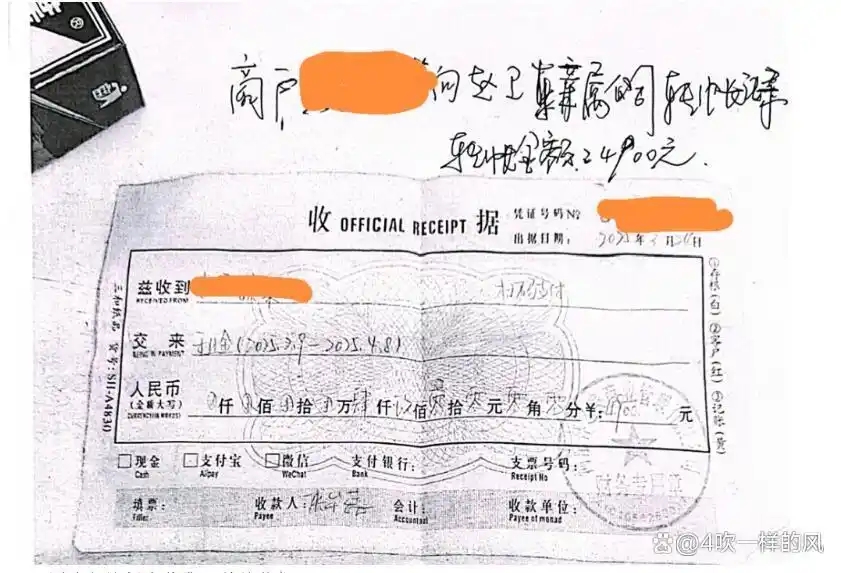 商户 向赵卫 亲属的 转帐记录
转帐金额: 24900元.
收 OFFICIAL RECEIPT 据
凭证号码 №
出据日期: 2025年3月 日
兹收到 扫码支付
RECEIVED FROM
交来 租金(2025.3.9-2025.4.8)
BEING IN PAYMENT
人民币
(金额大写) 仟 佰 拾 万 肆仟 佰 零拾 零元 零角 零分 ¥: 4900 元
CURRENCY(IN WORDS)
①存根(白) ②客户(红) ③记账(黄)
三和纸品 货号: SH-A4830
现金 支付宝 微信 支付银行: 支票号码:
Cash Alipay WeChat Bank Receipt No
填票: 收款人: 会计: 收款单位:
Filler Payee Accountant Payee of monad
财务专用章
@4吹一样的风